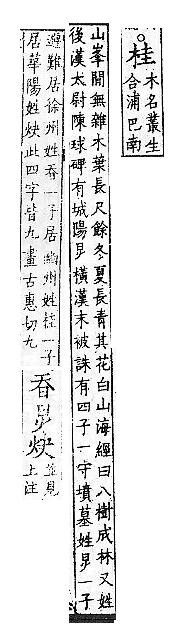 桂
木名叢生
合浦巴南
山峯間無雜木葉長尺餘冬夏長青其花白山海經曰八樹成林又姓
後漢太尉陳球碑有城陽炅橫漢末被誅有四子一守墳墓姓炅一子
避難居徐州姓昋一子居幽州姓桂一子
居華陽姓炔此四字皆九畫古惠切九
昋炅炔
並見
上注